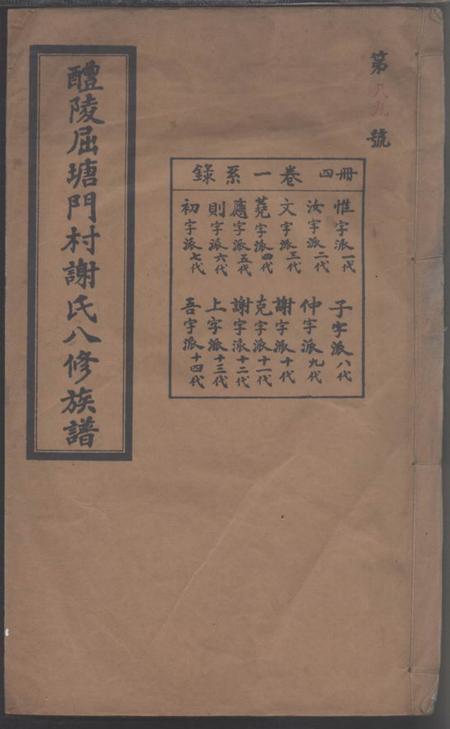 第號
冊四卷一系錄
惟字派一代
汝字派二代
文字派三代
堯字派四代
應字派五代
則字派六代
初字派七代
子字派八代
仲字派九代
謝字派十代
克字派十一代
謝字派十二代
上字派十三代
吾字派十四代
醴陵屈塘門村謝氏八修族譜